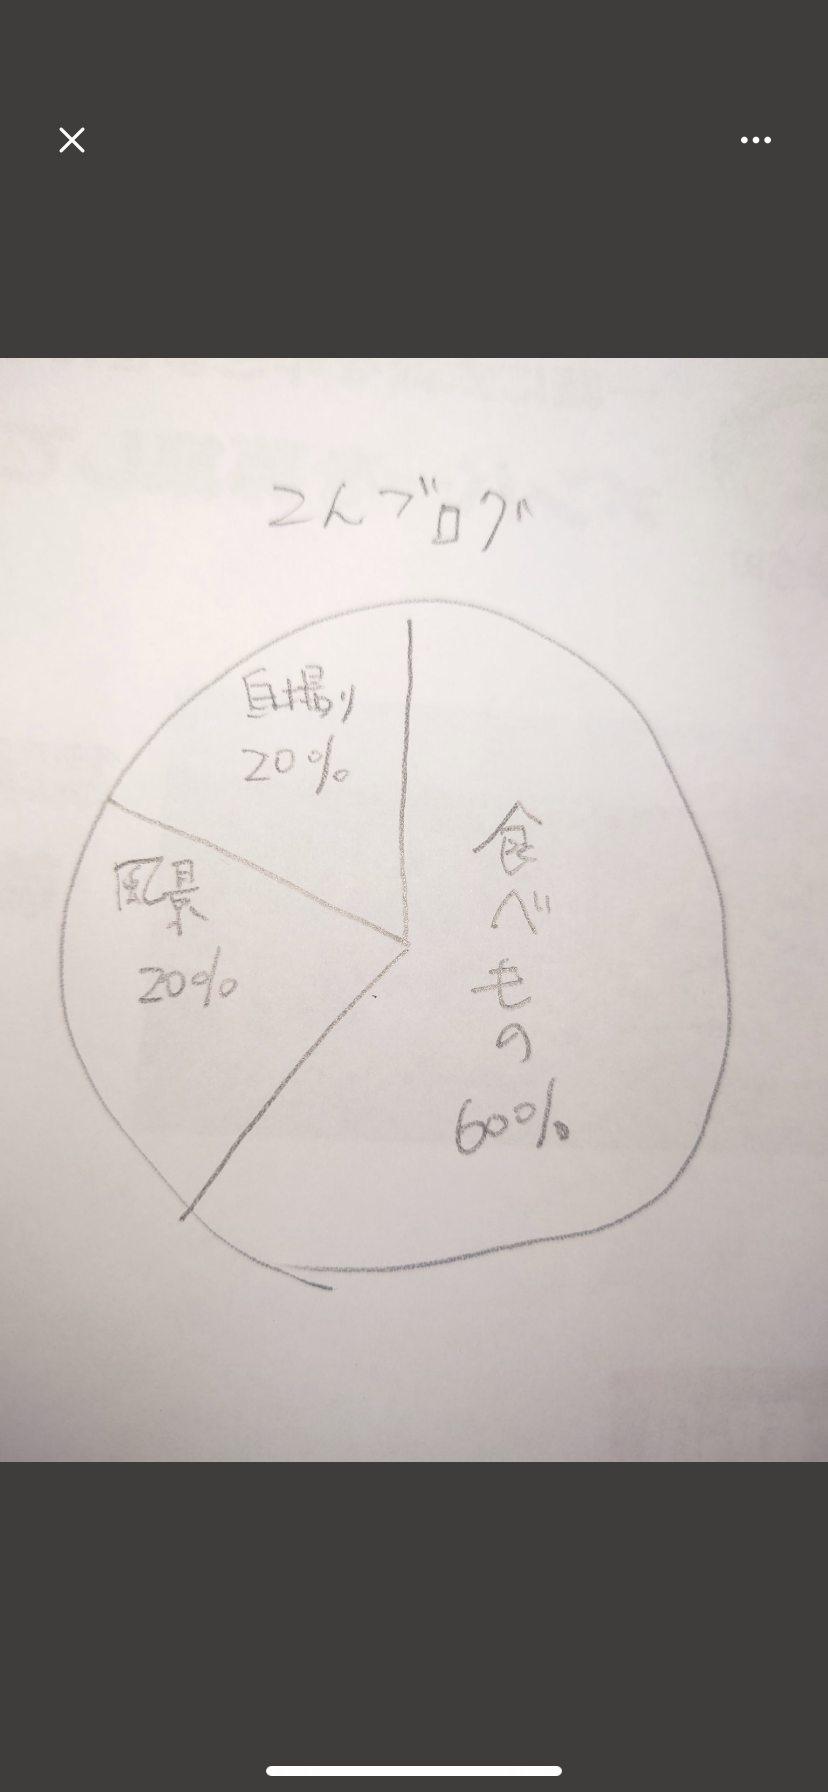 こんブログ
自撮り
20%
風景
20%
食べもの
60%